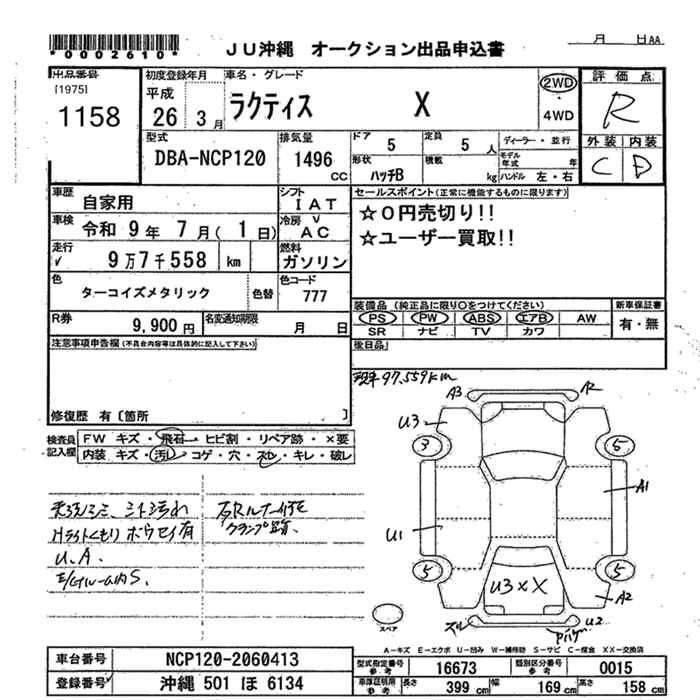 *0002610*
JU沖縄 オークション出品申込書
月 日AA
出品番号
[1975]
1158
初度登録年月
平成
26 3月
車名・グレード
ラクティス X
2WD
・
4WD
評価点
R
外装 内装
C D
型式
DBA-NCP120
排気量
1496 CC
ドア 5
定員 5 人
形状 ハッチB
積載 kg
ディーラー・並行
モデル年式 年
ハンドル 左・右
車歴
自家用
シフト
IAT
車検
令和 9年 7月( 1日)
冷房
AC
走行
9万7千558 km
燃料
ガソリン
色
ターコイズメタリック
色替
色コード
777
R券
9,900円
名変通知期限
月 日
セールスポイント(正常に機能するものに限ります)
☆0円売切り!!
☆ユーザー買取!!
装備品 (純正品に限り○をつけてください)
PS PW ABS エアB AW
SR ナビ TV カワ
新車保証書
有・無
後日品
注意事項申告欄(不具合内容等は具体的に記入して下さい)
修復歴 有〔箇所 〕
検査員記入欄
FW キズ・飛石・ヒビ割・リペア跡・×要
内装 キズ・汚レ・コゲ・穴・スレ・キレ・破レ
97,559km
シート汚れ
Hライトくもり
U.A.
A3
R
U3
3
5
A1
U1
5
5
U3××
A2
U2
スペア
A-キズ E-エクボ U-凹み W-補修跡 S-サビ C-腐食 XX-交換済
車台番号
NCP120-2060413
登録番号
沖縄 501 ほ 6134
型式指定番号 参考
16673
類別区分番号 参考
0015
車庫証明用 参考
長さ 399 cm
幅 169 cm
高さ 158 cm